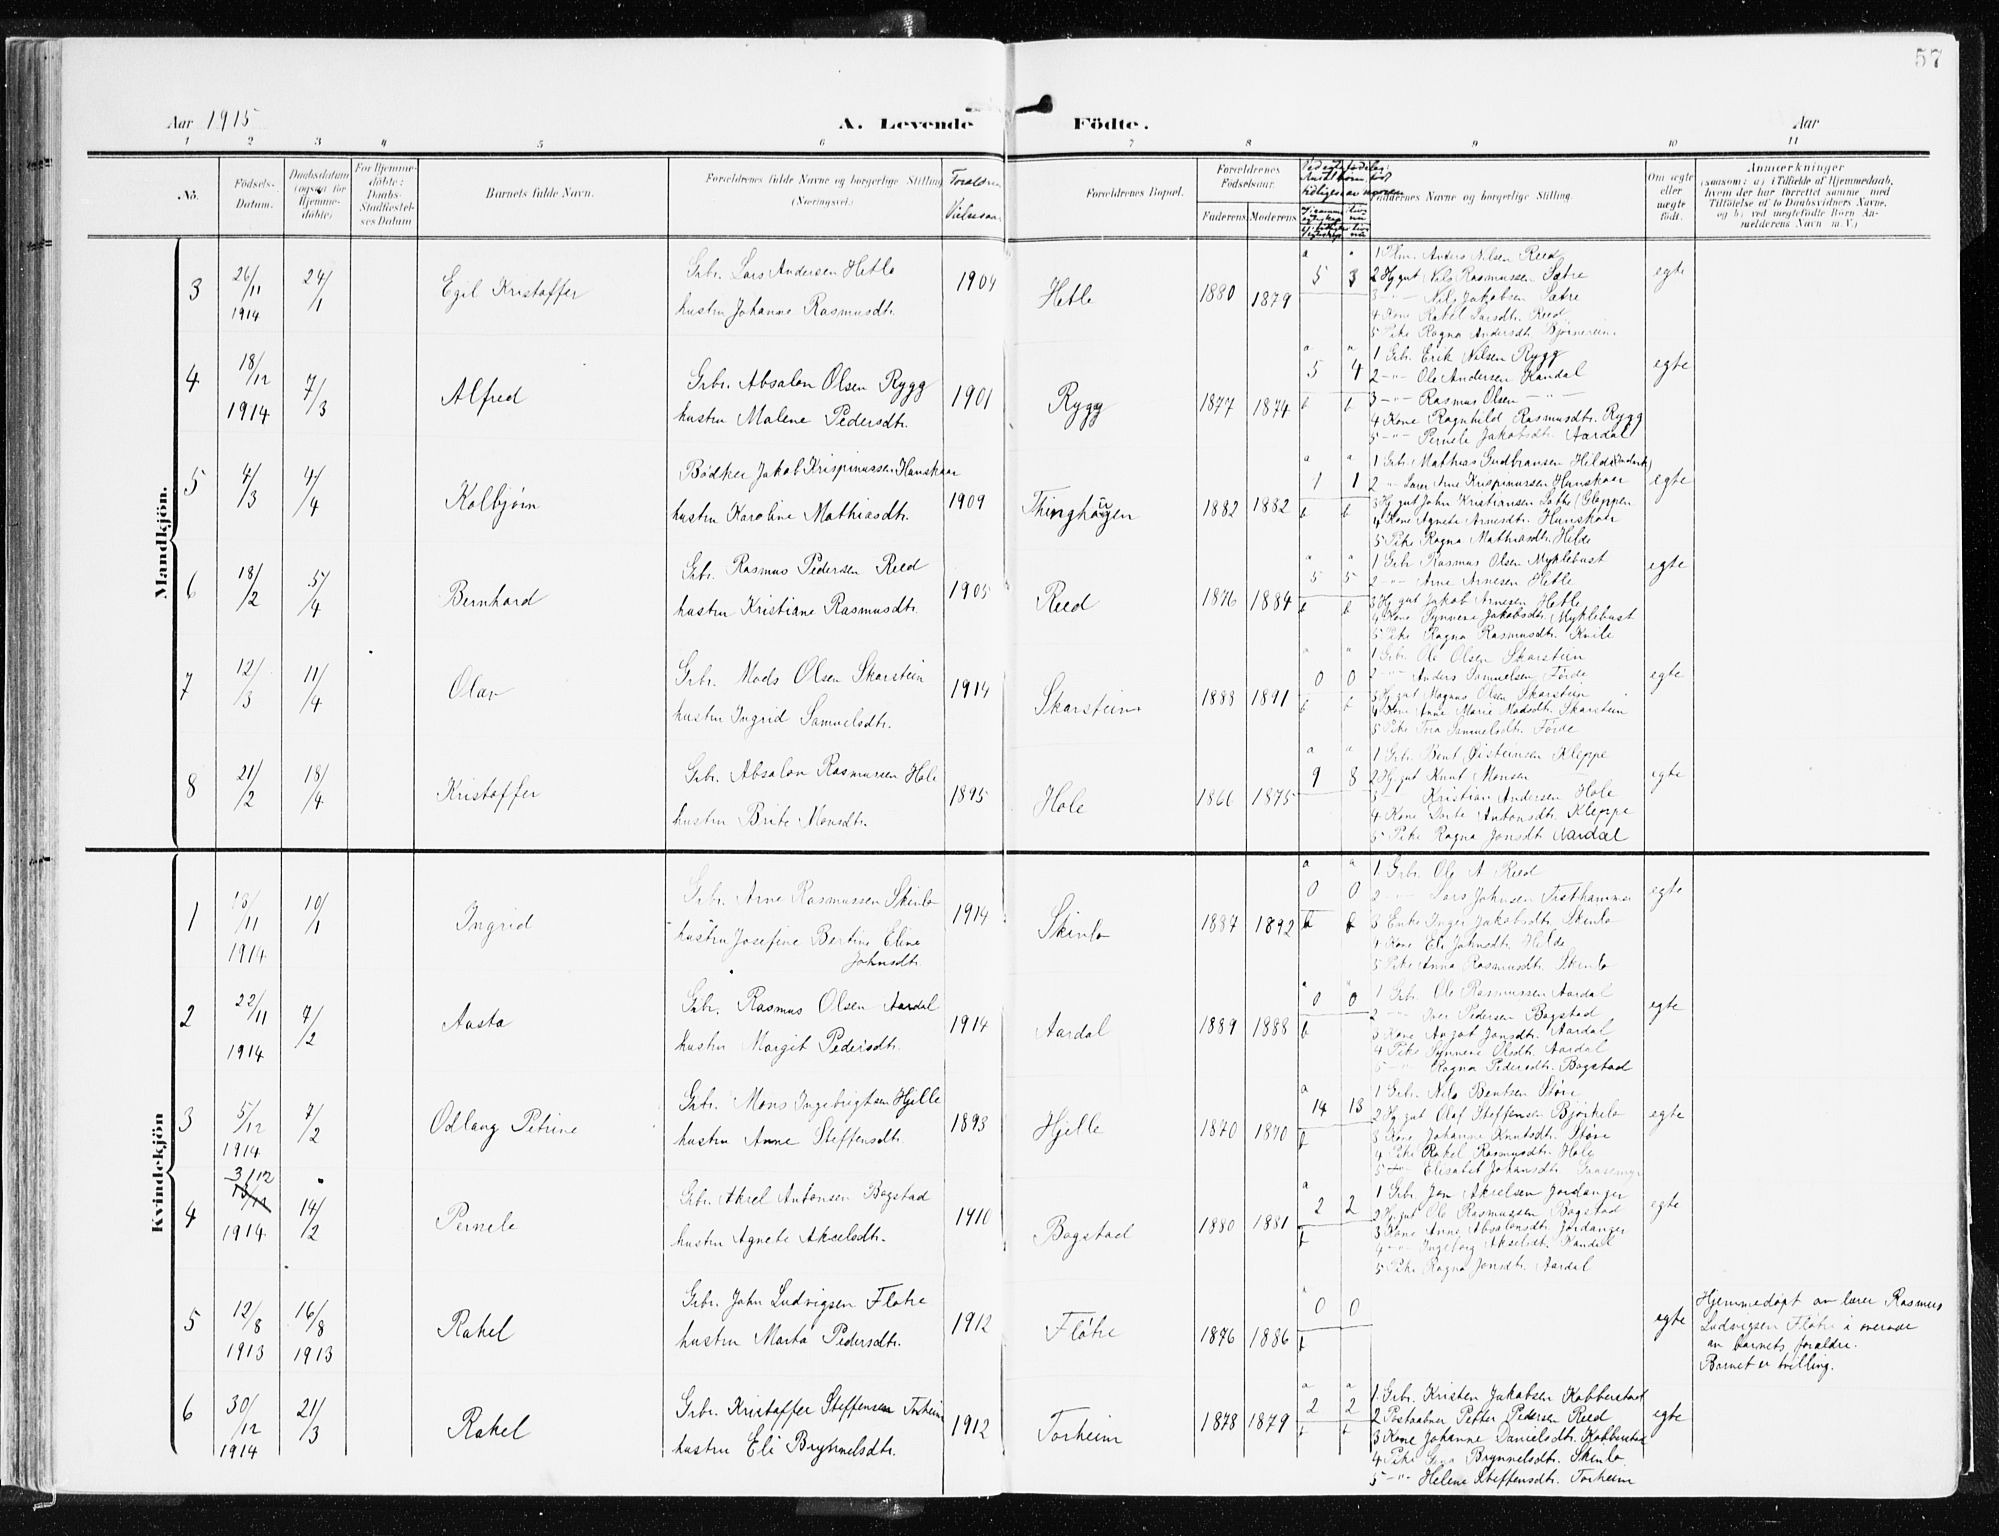 57
Aar 1915
A. Levende Födte.
Aar
1 2 3 4 5 6 7 8 9 10 11
No. Födsels-Datum. Daabsdatum (ogsaa for Hjemme-döbte) For Hjemme-döbte: Daabs-Stadfæstel-ses Datum Barnets fulde Navn. Forældrenes fulde Navne og borgerlige Stilling (Næringsvei.) Forældrenes Bopæl. Forældrenes Födselsaar. Faderens Moderens Faddernes Navne og borgerlige Stilling. Om ægte eller uægte födt. Anmærkninger
(saasom: a) i Tilfælde af Hjemmedaab, hvem der har forrettet samme med Tilföielse af to Daabsvidners Navne, og b) ved uægtefödte Börn An-melderens Navn m. V.)
Mandkjön.
3 26/11 1914 24/1 Egil Kristoffer Grbr. Lars Andersen Hetle 1904 Hetle 1880 1879 5 3 egte
hustru Johanne Rasmusdtr.
1 Plm. Anders Nilsen Reed
2 Hj gut Nils Rasmussen Sætre
3 -"- Nils Jakobsen Sætre
4 Kone Rakel Larsdtr. Reed
5 Pike Ragna Andersdtr.
4 18/12 1914 7/3 Alfred Grbr. Absalon Olsen Rygg 1901 Rygg 1877 1874 5 4 egte
hustru Malene Pedersdtr.
1 Grbr. Erik Nilsen Rygg
2 -"- Ole Andersen Kandal
3 -"- Rasmus Olsen -"-
4 Kone Ragnhild Rasmusdtr. Rygg
5 -"- Pernele Jakobsdtr. Aardal
5 4/3 4/4 Kolbjørn Bødker Jakob Krispinussen Hunskaar 1909 Thinghaugen 1882 1882 1 1 egte
hustru Karoline Mathiasdtr.
1 Grbr. Mathias Gudbransen Hilde
2 Lærer Arne Krispinussen Hunskaar
3 Hj gut John Kristiansen Gloppen
4 Kone Agnete Arnesdtr. Hunskaar
5 Pike Ragna Mathiasdtr. Hilde
6 18/2 5/4 Bernhard Grbr. Rasmus Pedersen Reed 1905 Reed 1876 1884 5 5 egte
hustru Kristiane Rasmusdtr.
1 Grbr Rasmus Olsen Myklebust
2 -"- Arne Arnesen Hetle
3 Hj gut Jakob Arnesen Hetle
4 Kone Synneve Jakobsdtr Myklebust
5 Pike Ragna Rasmusdtr. Kvile
7 12/3 11/4 Olav Grbr. Mads Olsen Skarstein 1914 Skarstein 1888 1891 0 0 egte
hustru Ingrid Samuelsdtr.
1 Grbr. Ole Olsen Skarstein
2 -"- Anders Samuelsen Førde
3 Hj gut Magnus Olsen Skarstein
4 Kone Anne Marie Madsdtr. Skarstein
5 Pike Tora Samuelsdtr. Førde
8 21/2 18/4 Kristoffer Grbr. Absalon Rasmussen Hole 1895 Hole 1866 1875 9 8 egte
hustru Brite Monsdtr.
1 Grbr. Bent Øisteinsen Kleppe
2 Hj gut Knut Monsen
3 Kristian Andersen Hole
4 Kone Dorte Antonsdtr. Kleppe
5 Pike Ragna Jonsdtr. Aardal
Kvindekjön
1 /11 1914 10/1 Ingrid Grbr. Arne Rasmussen Skinlo 1914 Skinlo 1887 1892 0 0 egte
hustru Josefine Bertine Eline Johnsdtr.
1 Grbr. Ole A Reed
2 -"- Lars Johnsen Tisthammer
3 Enke Inger Jakobsdtr. Skinlo
4 Kone Eli Johnsdtr. Hilde
5 Pike Anna Rasmusdtr. Skinlo
2 22/11 1914 7/2 Aasta Grbr. Rasmus Olsen Aardal 1914 Aardal 1889 1888 0 0 egte
hustru Margit Pedersdtr.
1 Grbr. Ole Rasmussen Aardal
2 -"- Iver Pedersen Bogstad
3 Kone Jonsdtr. Aardal
4 Pike Synneve Olsdtr. Aardal
5 -"- Ragna Pedersdtr. Bogstad
3 5/12 1914 7/2 Odlaug Petrine Grbr. Mons Ingebrigtsen Hjelle 1893 Hjelle 1870 1870 14 13 egte
hustru Anne Steffensdtr.
1 Grbr. Nils Bentsen Støre
2 Hj gut Olaf Steffensen Bjørkelo
3 Kone Johanne Knutsdtr. Støre
4 Pike Rakel Rasmusdtr. Hole
5 -"- Elisabet Johansdtr.
4 3/12 1914 14/2 Pernele Grbr. Aksel Antonsen Bogstad 1910 Bogstad 1880 1881 2 2 egte
hustru Agnete Akselsdtr.
1 Grbr. Jon Akselsen Jordanger
2 Hj gut Ole Rasmussen Bogstad
3 Kone Anne Absalonsdtr. Jordanger
4 -"- Ingeborg Akselsdtr. Kandal
5 Pike Ragna Jonsdtr. Aardal
5 12/8 1913 16/8 1913 Rakel Grbr. John Ludvigsen Fløtre 1912 Fløtre 1876 1886 0 0 egte
hustru Marta Pedersdtr.
Hjemmedøpt av lærer Rasmus
Ludvigsen Fløtre i overvær
av barnets forældre.
Barnet er tvilling.
6 30/12 1914 21/3 Rakel Grbr. Kristoffer Steffensen Torheim 1912 Torheim 1878 1879 2 2 egte
hustru Eli Brynnelsdtr.
1 Grbr. Kristen Jakobsen Kobberstad
2 Postaabner Petter Pedersen Reed
3 Kone Johanne Danielsdtr. Kobberstad
4 Pike Brynnelsdtr. Skinlo
5 -"- Helene Steffensdtr. Torheim